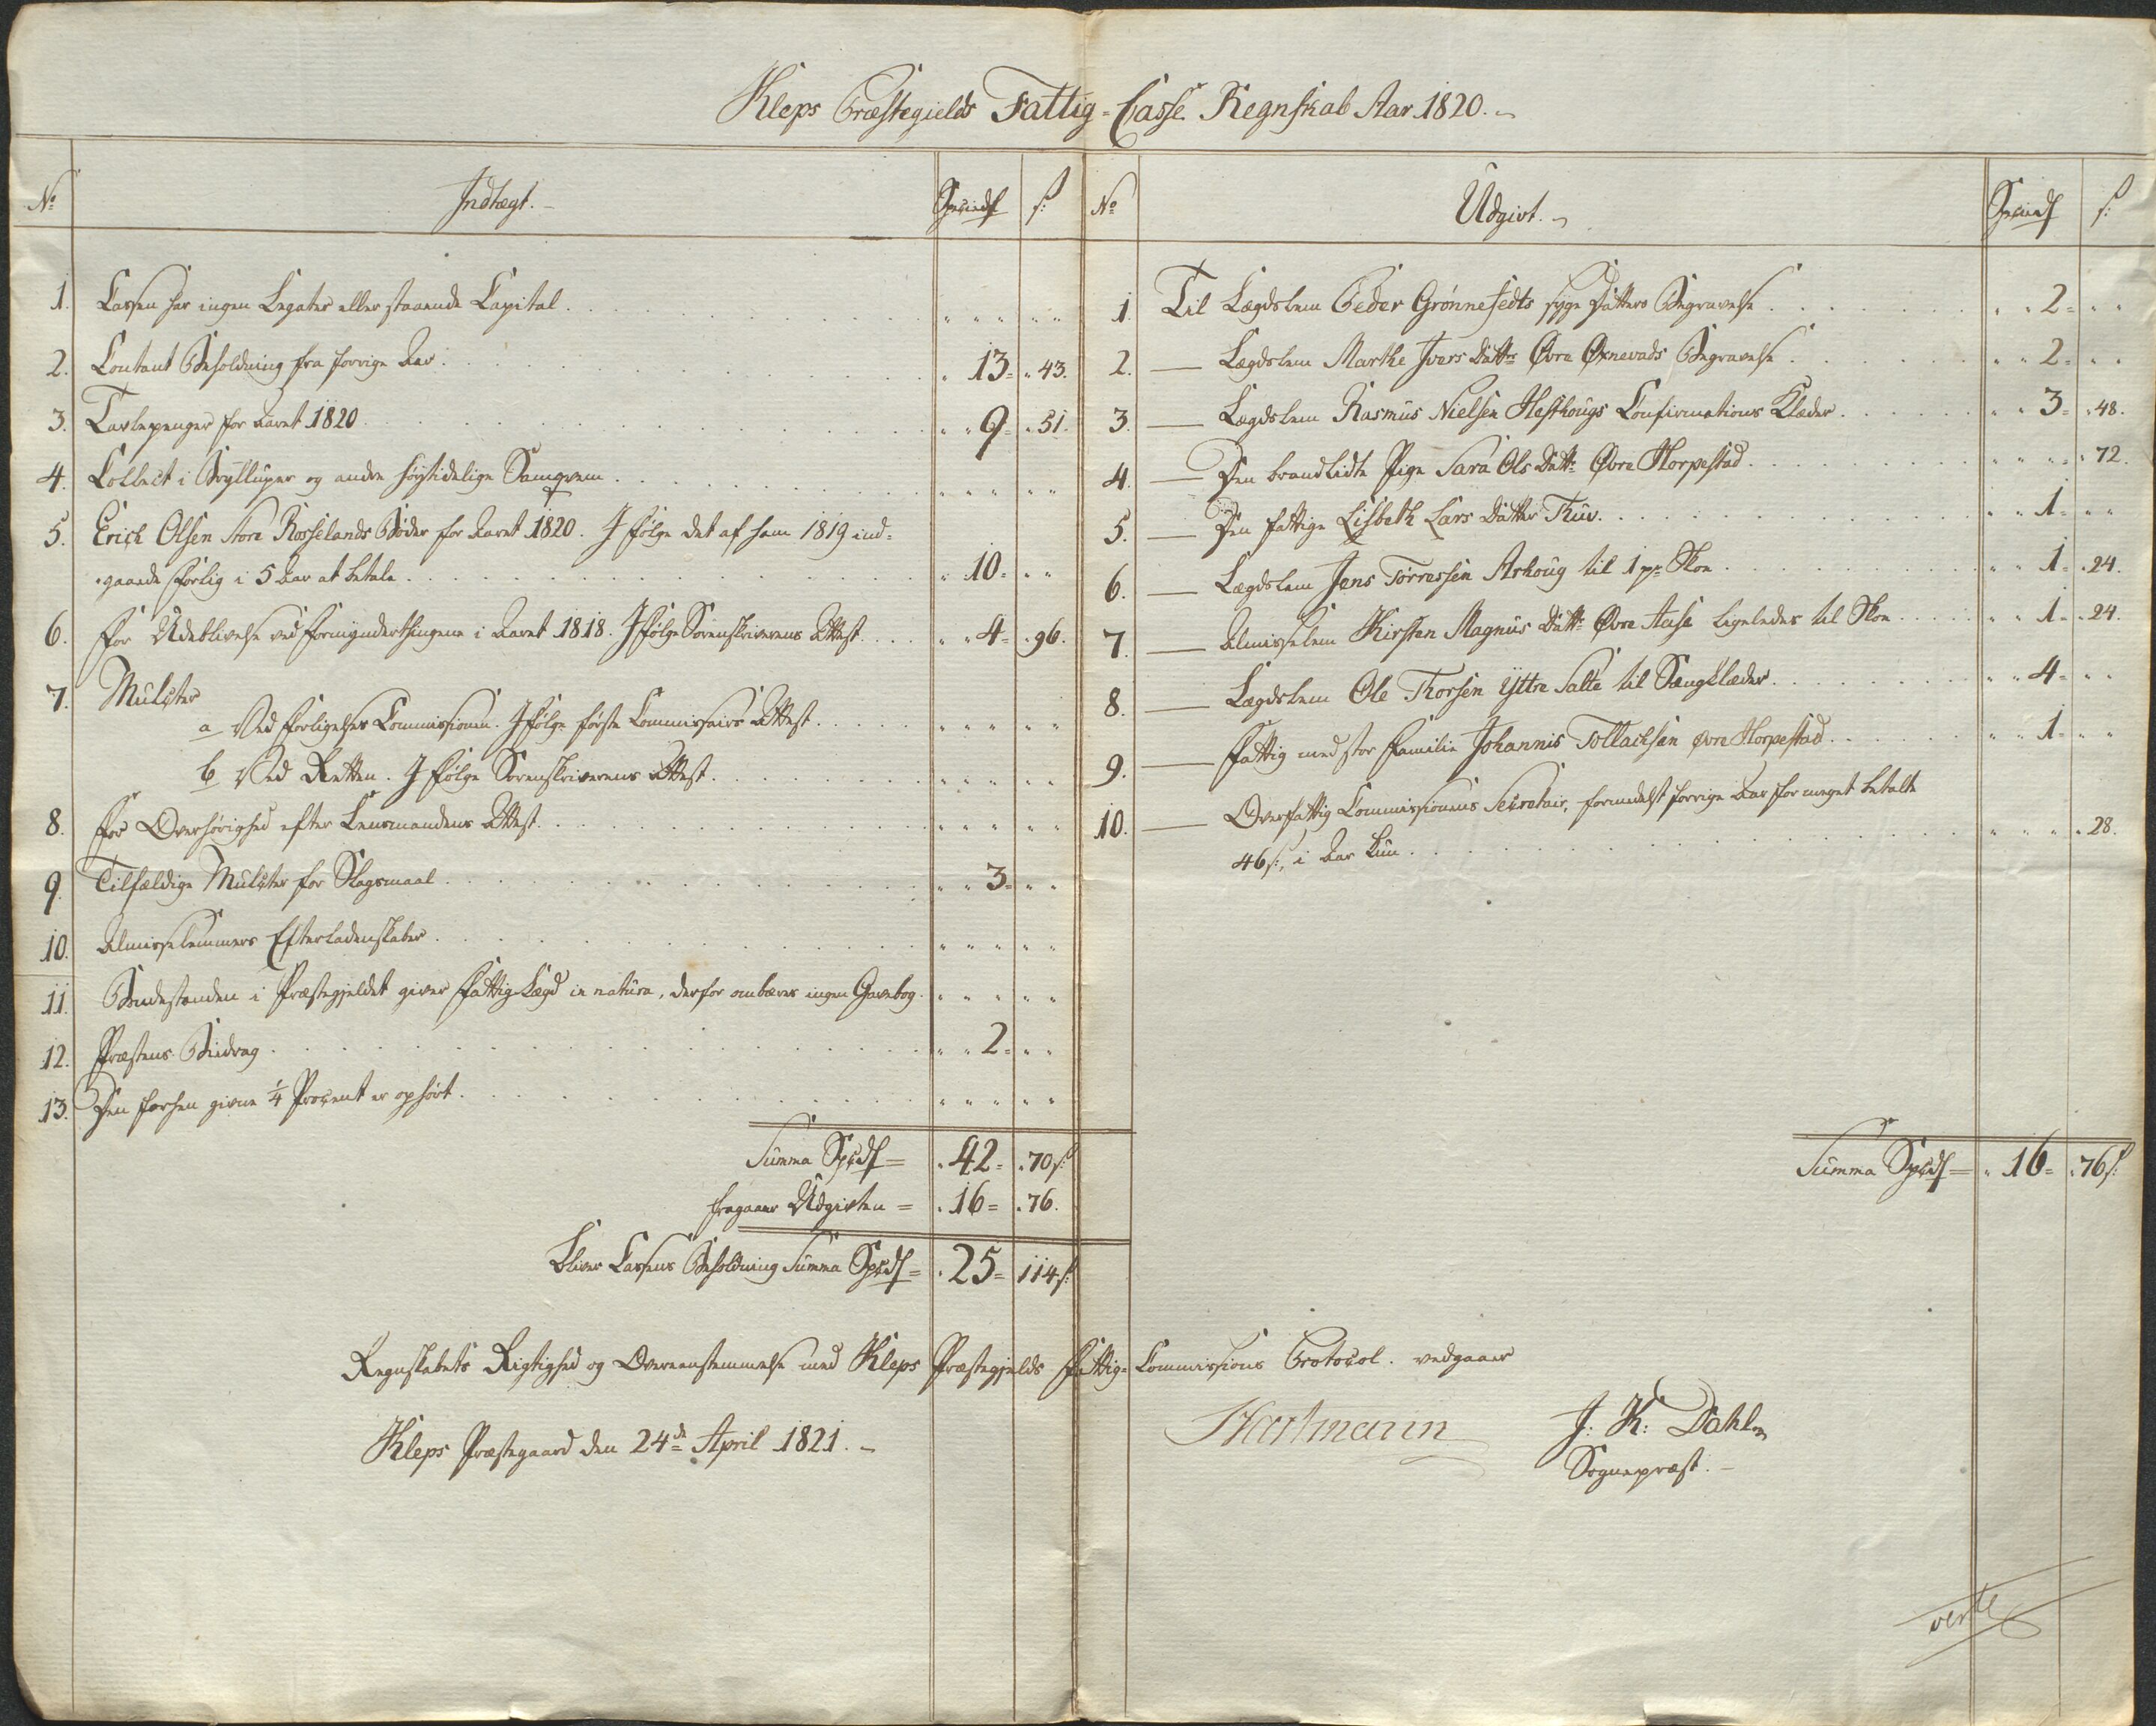 Kleps Præstegields Fattig-Casse Regnskab Aar 1820.
No Indtægt. Speciedr s:
1. Cassen har ingen Legater eller staaende Capital
2. Contant Beholdning fra forrige Aar 13 = 43.
3. Tavlepenger for Aaret 1820 9 = 51.
4. Collect i Brylluper og andre høytidelige Samqvem
5. Erich Olsen Store Rosselands Bøder for Aaret 1820. I følge det af ham 1819 ind-
gaaede Forlig i 5 Aar at betale 10 =
6. For Udeblivelse ved Formynderthingene i Aaret 1818. I følge Sorenskriverens Attest 4 = 96.
7. Mulcter
a Ved Forligelses Commissionen. I følge første Commissairs Attest
b Ved Retten. I følge Sorenskriverens Attest
8. For Overhørighed efter Lensmandens Attest
9. Tilfældige Mulcter for Slagsmaal 3 =
10. Almisselemmers Efterladenskaber
11. Bondestanden i Præstegjeldet giver Fattig Lægd in natura, derfor ombæres ingen Gavebog.
12. Præstens Bidrag 2 =
13. Den forhen givne 1/4 Procent er ophørt
Summa Spcdr = 42 = 70 s:
fragaaer Udgivten = 16 = 76.
bliver Cassens Beholdning Summa Spcdr = 25 = 114 s:
No Udgivt. Speciedr s:
1. Til Lægdslem Peder Grønnesedts syge Datters Begravelse 2 =
2. — Lægdslem Marthe Ivers Dattr Øvre Øxnevads Begravelse 2 =
3. — Lægdslem Rasmus Nielsen Hesthougs Confirmations Klæder 3 = 48.
4. — Den brandlidte Pige Sara Ols Dattr Øvre Horpestad 72.
5. — Den fattige Lisbeth Lars Datter Tuv 1 =
6. — Lægdslem Jens Torressen Arhoug til 1 pr Skoe 1 = 24.
7. — Almisselem Kirsten Magnus Dattr Øvre Aase ligeledes til Skoe 1 = 24.
8. — Lægdslem Ole Thorsen Yttre Salte til Sængklæder 4 =
9. — Fattig med stor Familie Johannis Tollachsen øvre Horpestad 1 =
10. — Overfattig Commissionens Secretair, formedelst forrige Aar for meget betalte
46 s:, i Aar kun 28.
Summa Spcdr = 16 = 76 s:
Regnskabets Rigtighed og Overeenstemmelse med Kleps Præstegjelds Fattig-Commissions Protocol. vedgaaer
Kleps Præstegaard den 24de April 1821.
Hartmann
J: K: Dahl
Sognepræst.
verte